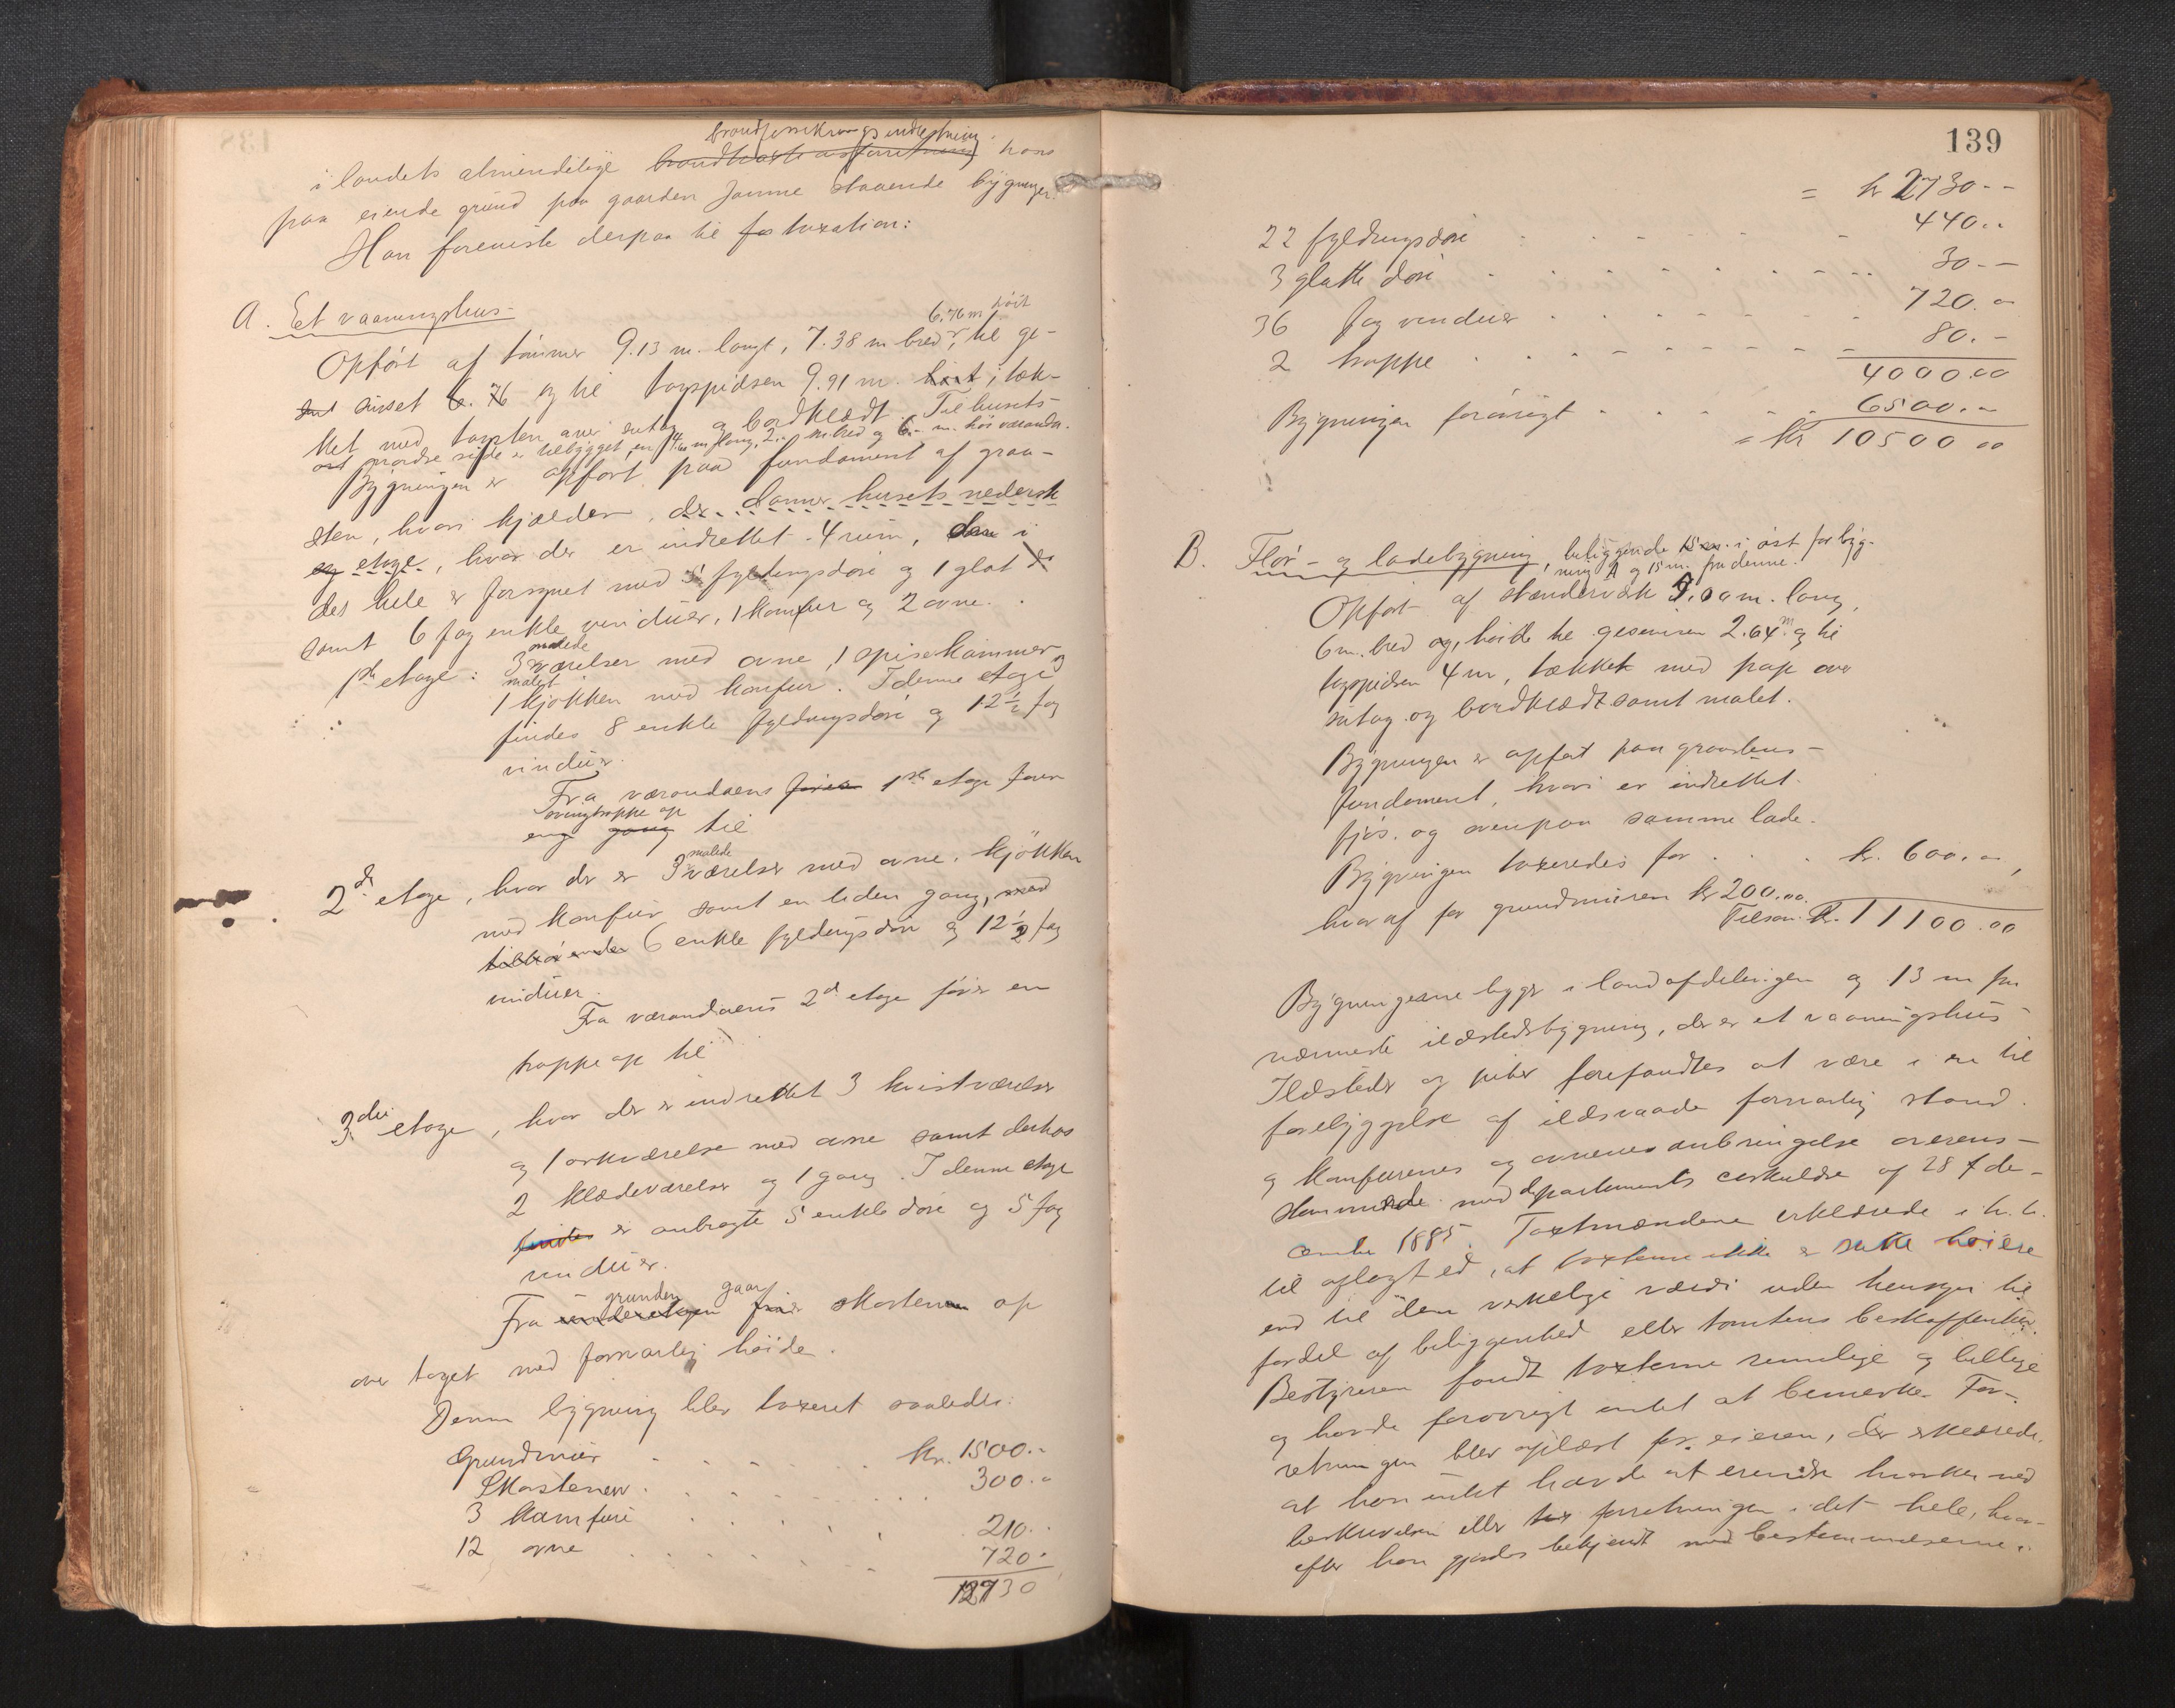 brandforsikringsindretning
i landets almindelige brandtaxtationsforretning hans
paa eiende grund paa gaarden Janne staaende bygninger.
Han foreviste derpaa til fo taxation:
A. Et vaaningshus
6.76 m høit
Opført af tømmer 9.13 m. langt, 7.38 m bredt, til ge-
simset 6.76 og til tagspidsen 9.91 m. høit i tæk-
ket med tagsten over sutag og bordklædt. Til husets
nordre side er tilbygget, en 4. m lang, 2. m. bred og 6. m. høi veranda.
Bygningen er opført paa fundament af graa-
sten, hvori kjælder, der danner husets nederste
og etage, hvor der er indrettet 4 rum, den i
det hele er forsynet med 5 fyldingsdøre og 1 glat dø
samt 6 fag enkle vinduer, 1 komfur og 2 ovne.
1ste etage: 3 malede værelser med ovne, 1 spisekammer og
malet
1 kjøkken med komfur. I denne etage
findes 8 enkle fyldingsdøre og 12 1/2 fag
vinduer.
Fra verandaens fører 1ste etage fører
svingtrappe op
en gang til
2den etage, hvor der er 3 malede værelser med ovne, kjøkken
med komfur samt en liden gang, med
tilhørende 6 enkle fyldingsdøre og 12 1/2 fag
vinduer.
Fra verandaens 2d etage fører en
trappe op til
3die etage, hvor der er indrettet 3 kvistværelser
og 1 arkværelse med ovne samt derhos
2 klædeværelser og 1 gang. I denne etage
findes er anbragte 5 enkle døre og 5 fag
vinduer.
grunden gaar
Fra underetagen fører skorstenen op
over taget med forsvarlig høide.
Denne bygning blev taxeret saaledes:
Grundmur . . . . . kr. 1500.-
Skorstenen . . . . . 300.-
3 Komfure . . . . . 210.-
12 ovne . . . . . 720.-
2730
139
= kr 2730.-
22 fyldingsdøre . . . . . 440.-
3 glatte døre . . . . . 30.-
36 fag vinduer . . . . . 720.-
2 trappe . . . . . 80.-
4000.00
Bygningen forøvrigt . . . . . 6500.-
= Kr 10500.00
B. Flor- og ladebygning, beliggende 15 m. i øst for byg-
ning A og 15 m. fra denne.
Opført af stænderværk 9.00 m. lang,
6 m. bred og, høide til gesimsen 2.64 m og til
tagspidsen 4 m, tækket med pap over
sutag og bordklædt samt malet.
Bygningen er opført paa graastens-
fundament, hvori er indrettet
fjøs. og ovenpaa samme lade.
Bygningen taxeredes for . . . kr. 600.-
hvoraf for grundmuren kr 200.00.
Tilsam. Kr. 11100.00
Bygningerne ligger i landafdelingen og 13 m fra
nærmeste ildstedsbygning, der er et vaaningshus
Ildsteder og piber forefandtes at være i en til
forebyggelse af ildsvaade forsvarlig stand
og komfurenes og ovnenes anbringelse overens-
stemmende med departements cirkulære af 28 de-
cember 1885. Taxtmændene erklærede i h.t.
til aflagt ed, at taxterne ikke er satte høiere
end til den virkelige værdi uden hensyn til
fordel af beliggenhed eller tomtens beskaffenhed.
Bestyreren fandt taxterne rimelige og billige
og havde forøvrigt intet at bemerke. For-
retningen blev oplæst for eieren, der erklærede
at han intet havde at erindre hverken ved
beskrivelsen eller tax forretningen i det hele, hvor-
efter han gjordes bekjendt med bestemmelserne i